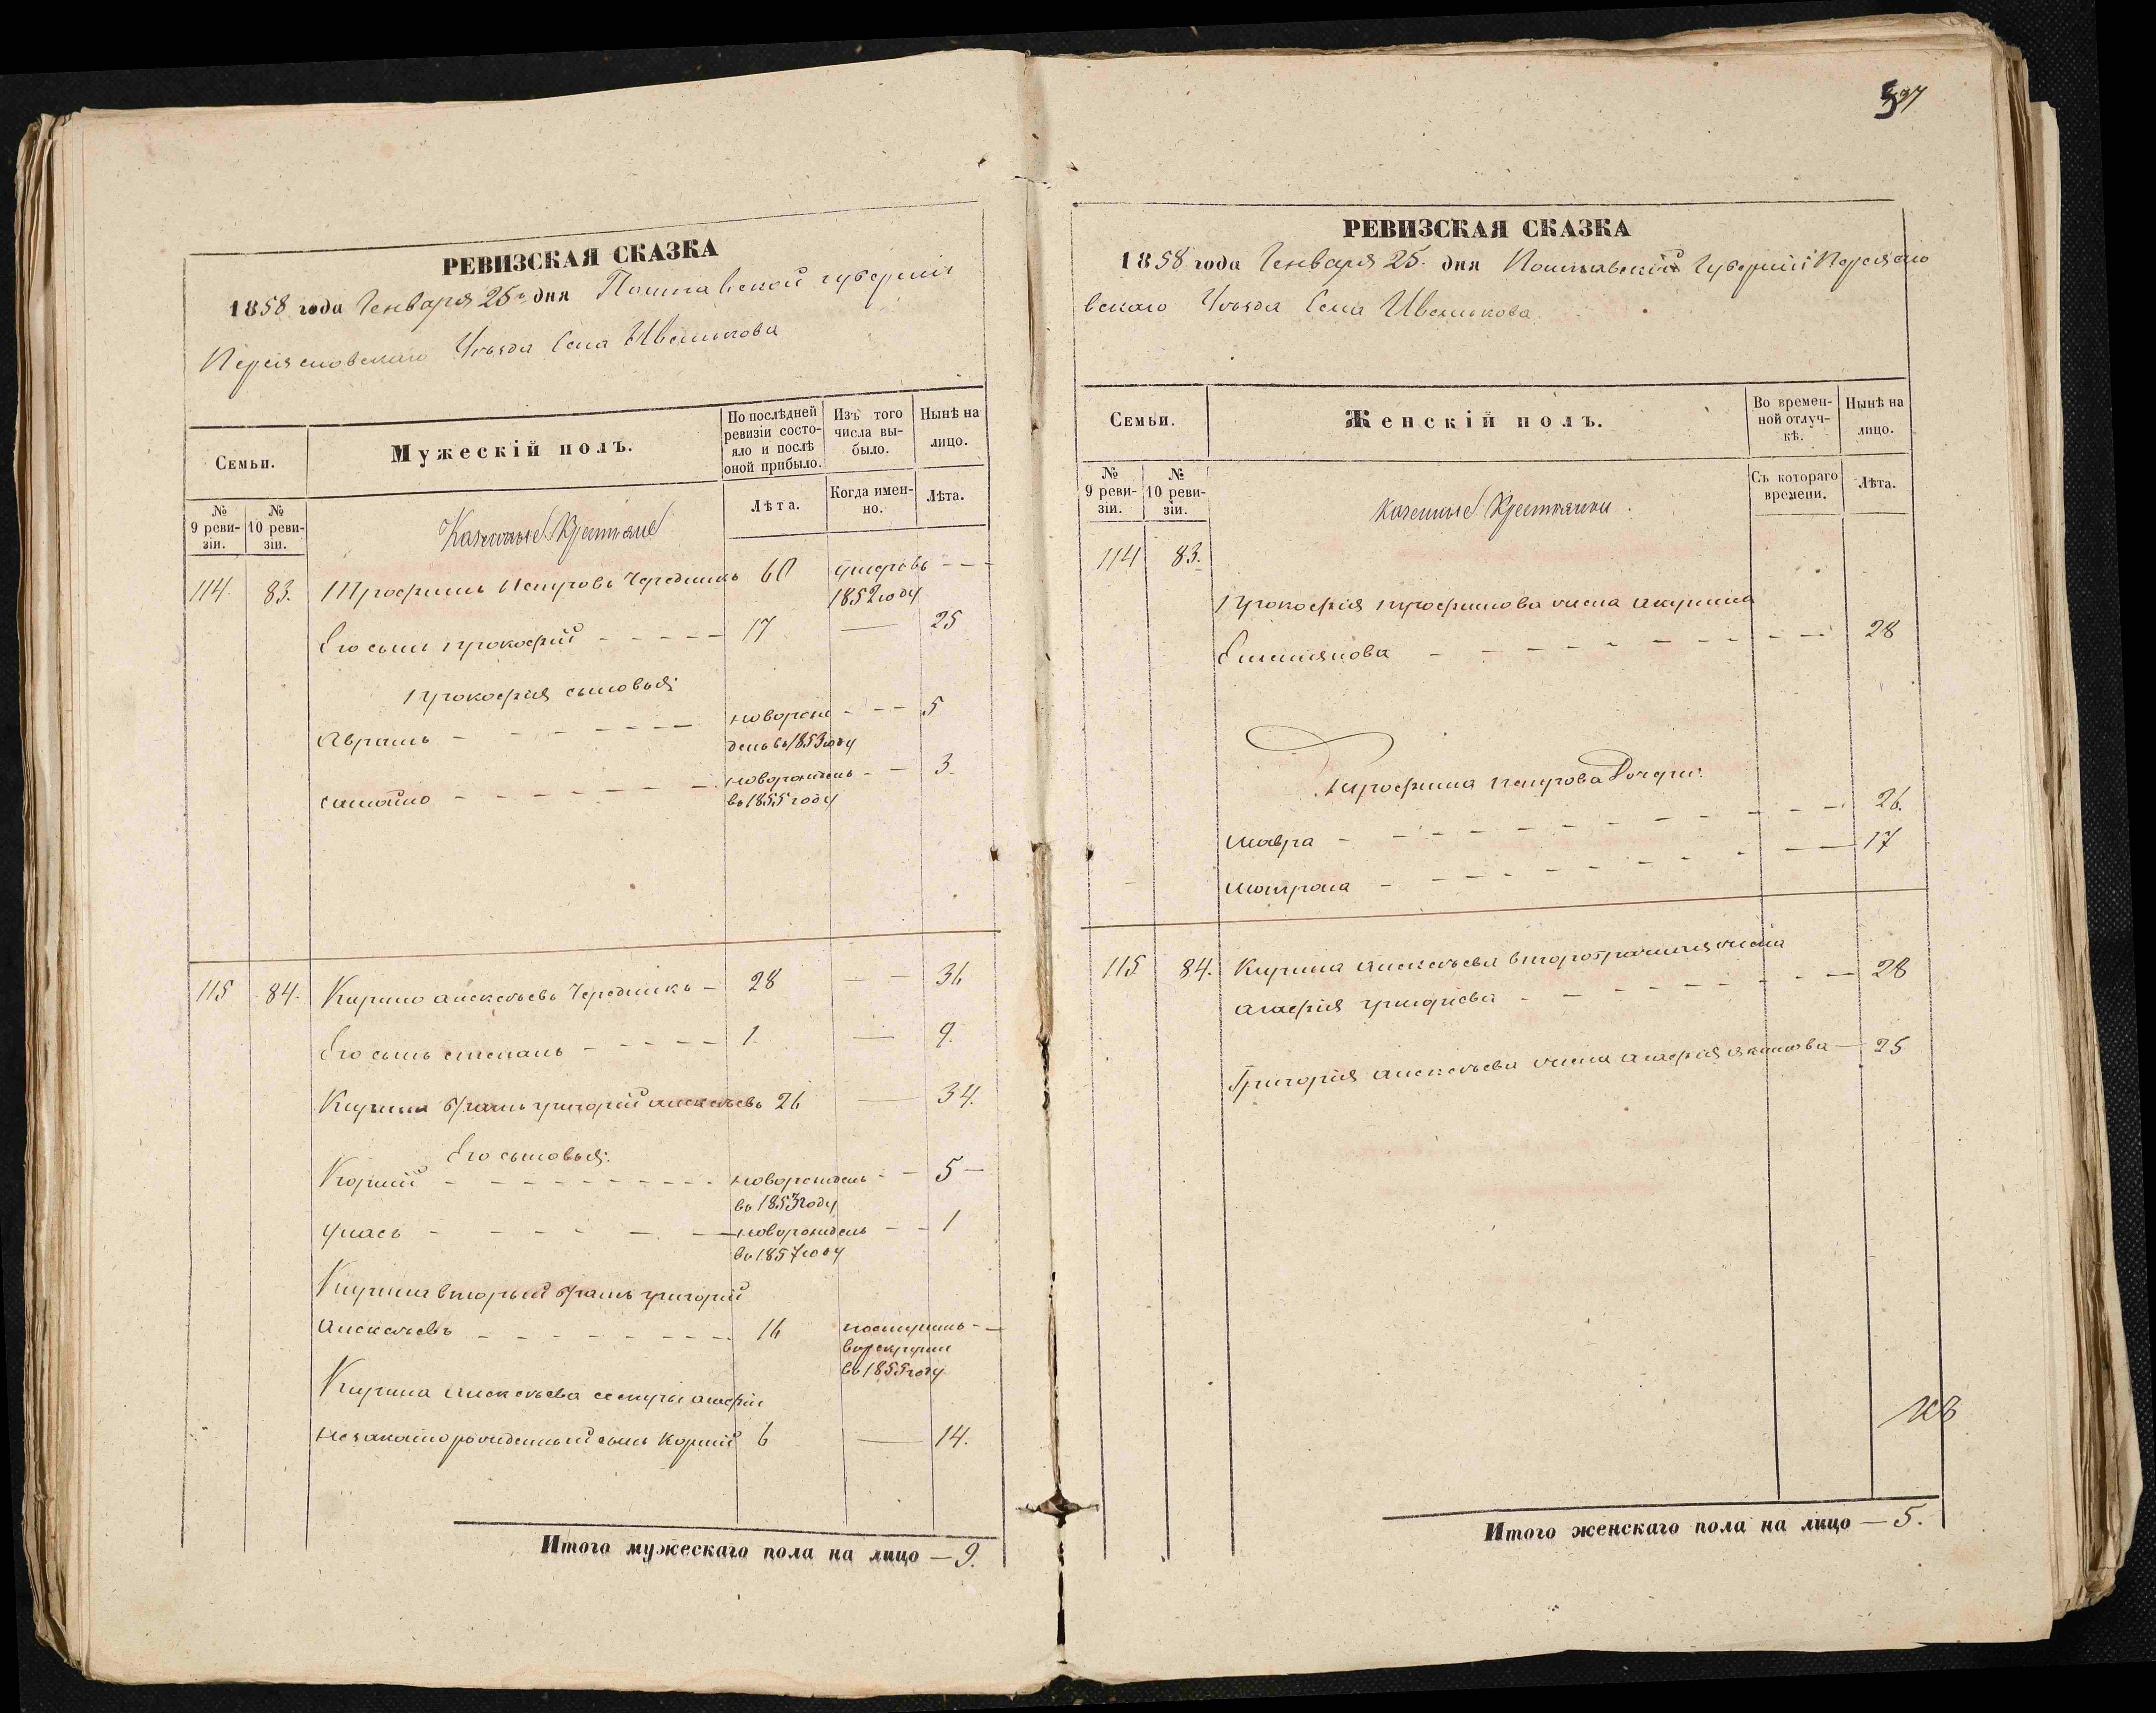 397
РЕВИЗСКАЯ СКАЗКА
1858 года Генваря 25го дня Полтавской губерніи
Переясловскаго Уѣзда Села Иванькова
Семьи.
Мужескій полъ.
По послѣдней ревизіи состояло и послѣ оной прибыло.
Изъ того числа выбыло.
Нынѣ на лицо.
№ 9 ревизіи.
№ 10 ревизіи.
Казенные Крестьяне
Лѣта.
Когда именно.
Лѣта.
114. 83. Трофимъ Петровъ Чередникъ 60 умеръ въ
1852 году
Его сынъ прокофій 17 — 25
прокофія сыновья:
Аврамъ новорож 5
денъ въ 1853 году
самойло новорожденъ 3.
въ 1855 году
115 84. Кирило алексѣевъ Чередникъ 28 — 36
Его сынъ степанъ 1. — 9.
Кирила братъ григорій алексѣевъ 26 — 34.
Его сыновья:
Корній новорожденъ 5
въ 1853 году
новорожденъ 1
въ 1857 году
Кирила вторый братъ григорій
Алексѣевъ 16 поступилъ
въ рекруты
въ 1855 году
Кирила алексѣева сестры агафіи
незаконорожденный сынъ Корній 6 — 14.
Итого мужескаго пола на лицо — 9.
РЕВИЗСКАЯ СКАЗКА
1858 года Генваря 25. дня Полтавской Губерніи Переясло
вскаго Уѣзда Села Иванькова
Семьи.
Женскій полъ.
Во временной отлучкѣ.
Нынѣ на лицо.
№ 9 ревизіи.
№ 10 ревизіи.
Казенные Крестьянки.
Съ котораго времени.
Лѣта.
114 83.
Прокофія трофимова жена акулина
Емельянова 28
Трофима петрова Дочери:
мавра 26.
мотрона 17
115 84. Кирила алексѣева второбрачная жена
агафія григорьева 28
Григорія алексѣева жена агафія якимова — 25
Итого женскаго пола на лицо — 5.